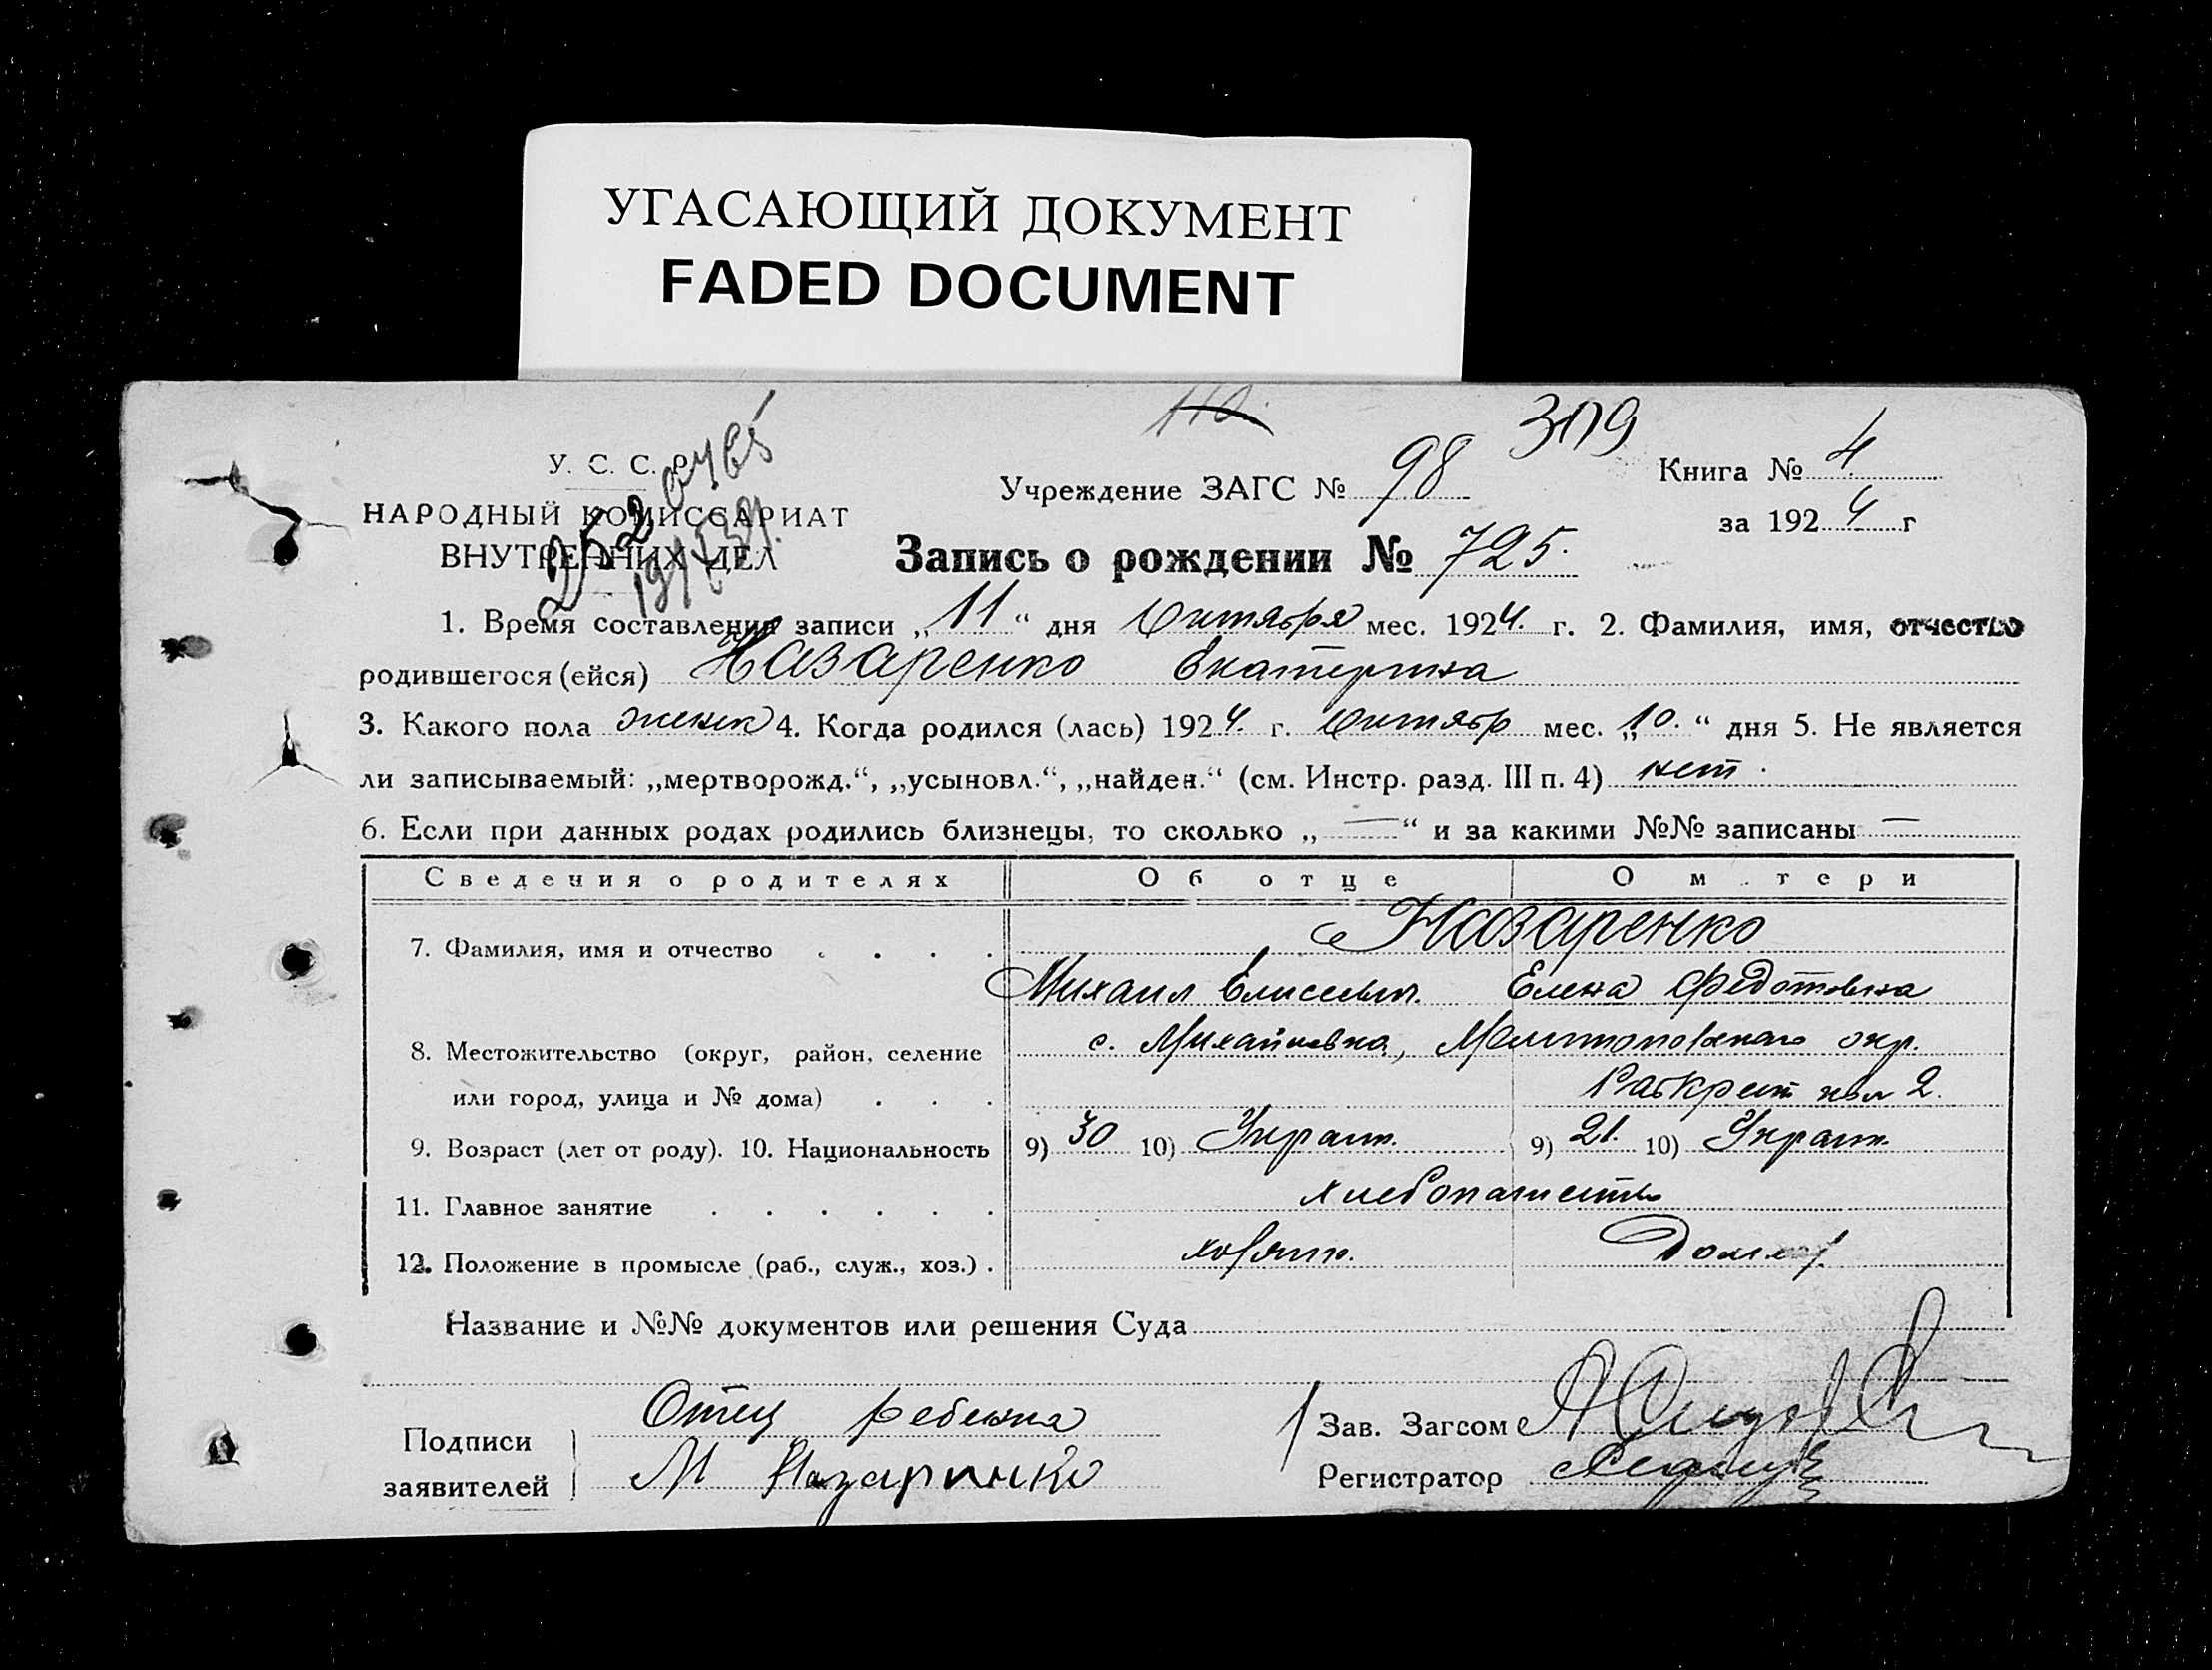 УГАСАЮЩИЙ ДОКУМЕНТ
FADED DOCUMENT
110.
309
У. С. С. Р.
НАРОДНЫЙ КОМИССАРИАТ
ВНУТРЕННИХ ДЕЛ
Учреждение ЗАГС № 98
Книга № 4
за 1924 г
Запись о рождении № 725.
1. Время составления записи „11“ дня Октября мес. 1924. г. 2. Фамилия, имя, отчество
родившегося (ейся) Назаренко Екатерина
3. Какого пола женск 4. Когда родился (лась) 1924. г. Октябр мес. „10.“ дня 5. Не является
ли записываемый: „мертворожд.“, „усыновл.“, „найден.“ (см. Инстр. разд. III п. 4) нет.
6. Если при данных родах родились близнецы, то сколько „—“ и за какими №№ записаны —
Сведения о родителях Об отце О м тери
7. Фамилия, имя и отчество . . . . Назаренко
Михаил Елисеевич. Елена Федотовна
8. Местожительство (округ, район, селение с. Михайловка, Мелитопольского окр.
или город, улица и № дома) . . .
9. Возраст (лет от роду). 10. Национальность 9) 30 10) Украин. 9) 21. 10) Украин.
11. Главное занятие . . . . . . хлебопашество
12. Положение в промысле (раб., служ., хоз.) . хозяин.
Название и №№ документов или решения Суда
Подписи
заявителей
Отец ребенка
М Назаринко
Зав. Загсом
Регистратор